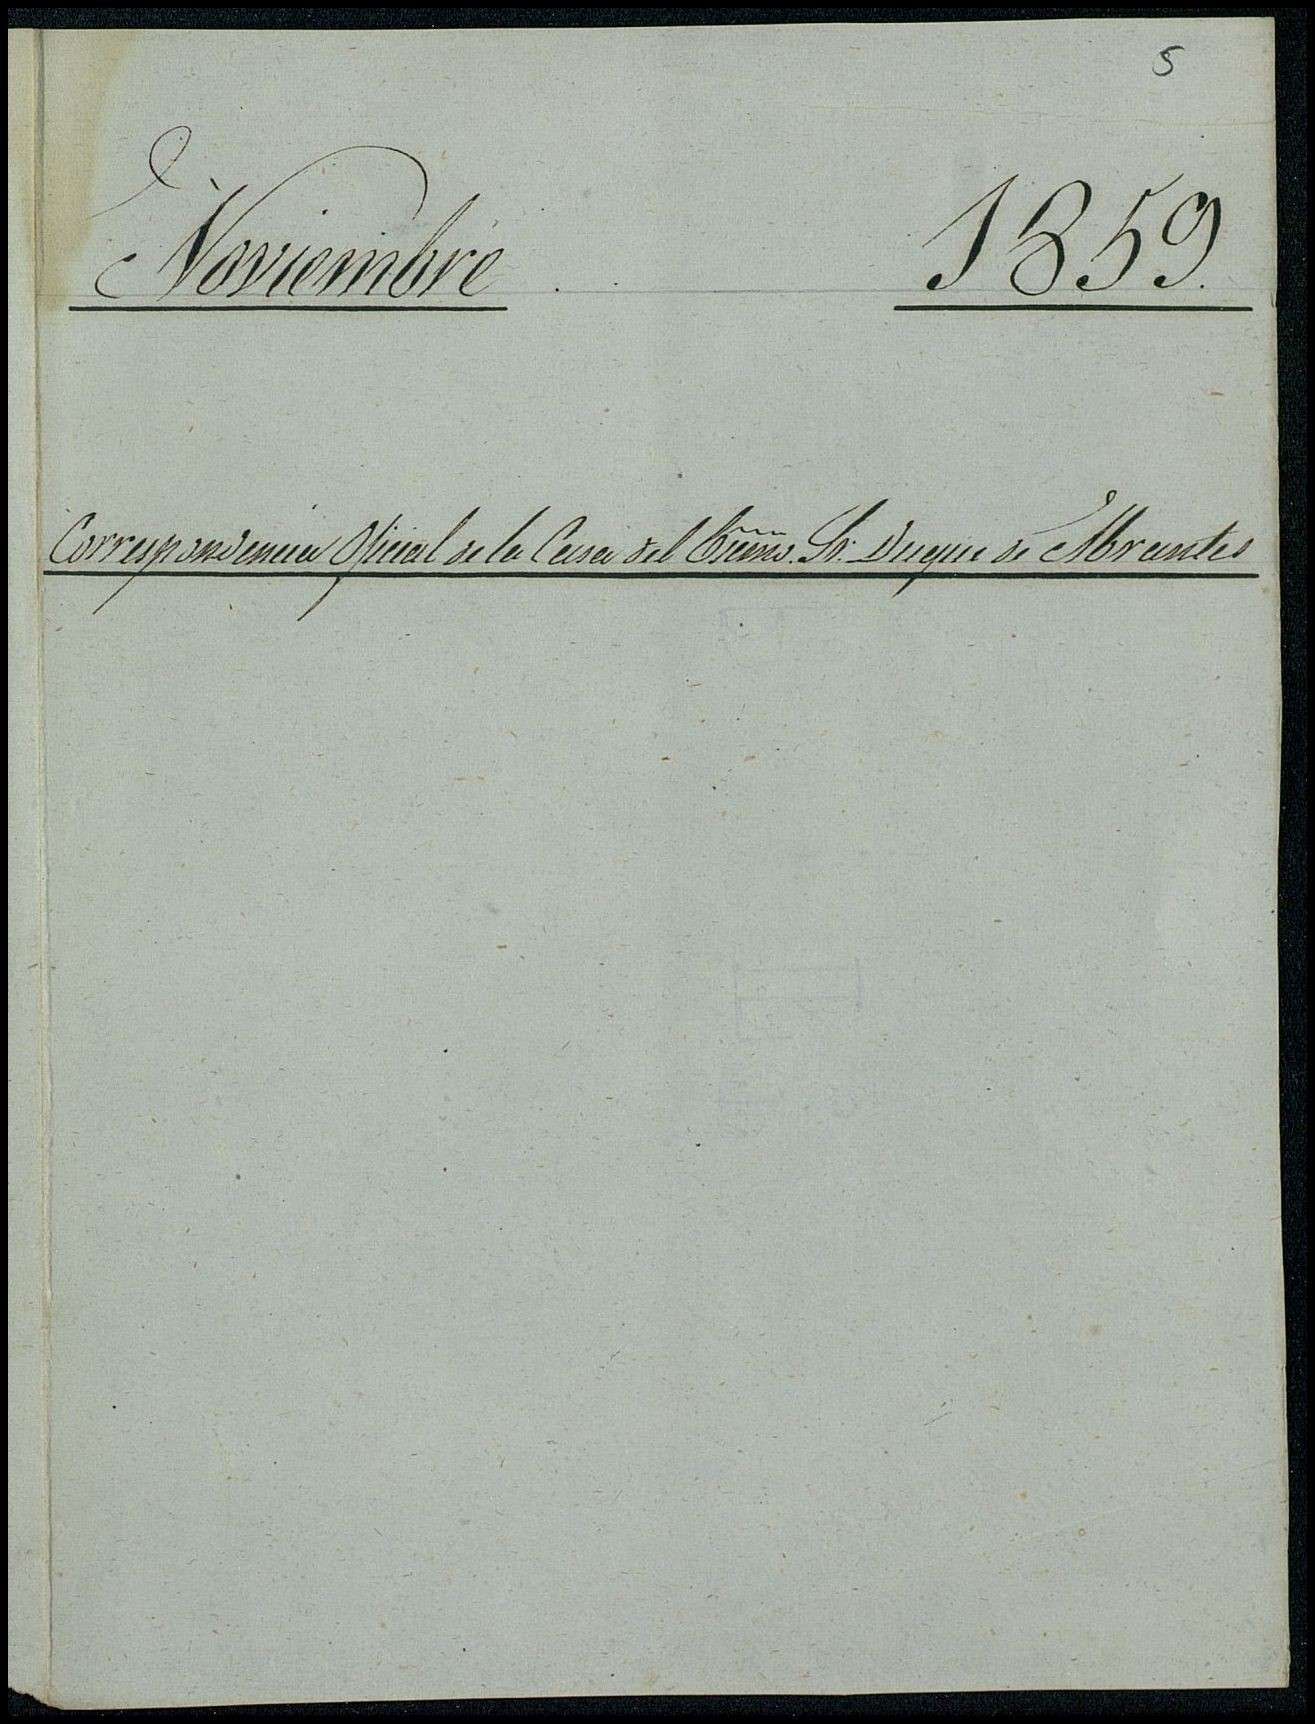 5
Noviembre 1859.
Correspondencia Oficial de la Casa del Excmo. Sr. Duque de Abrantes